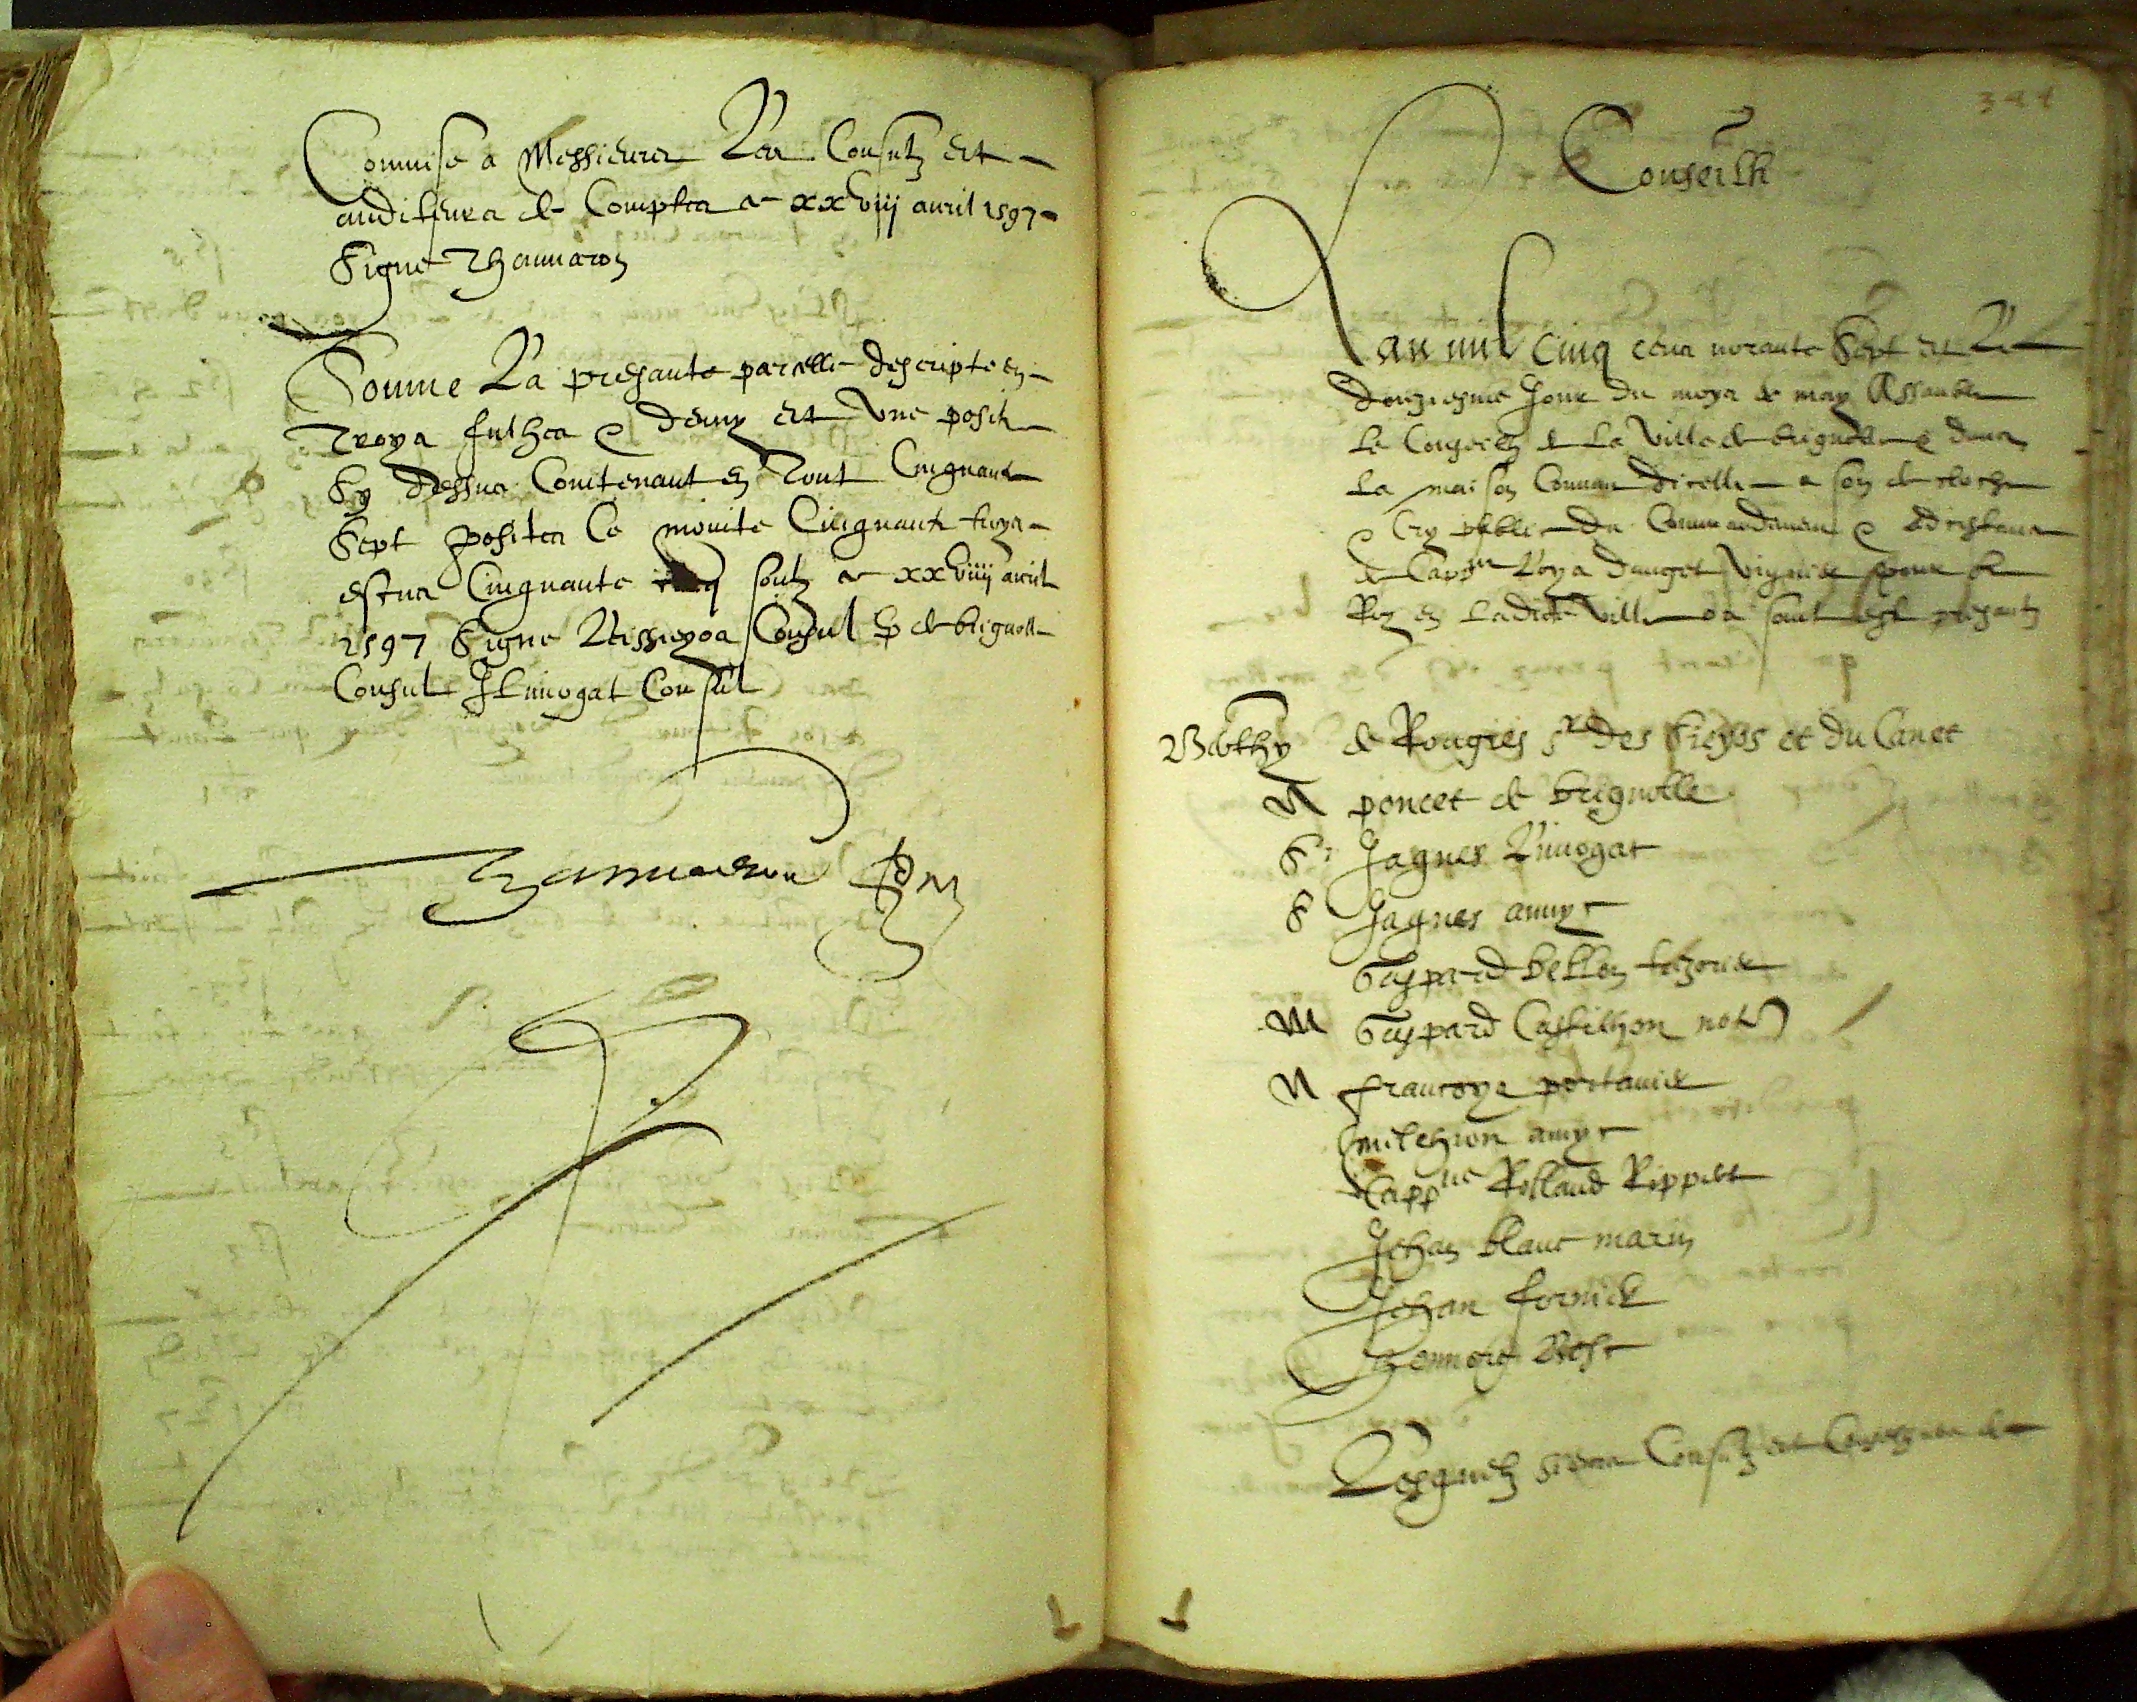 Commise a Messieurs Les Consulz et
auditeurs de Comptes ce xxviij auril 1597
Signe Chauuaron
Somme La presante parcelle descripte en
Troys fulhes e demy et vne posite
Sy dessus Contenant en Tout Cinquante
Sept posites Ce monte Cinquante troys
escus Cinquante soulz ce xxviiij auril
1597 Signe Consul de brignolle
Consul J Limogat Consul
Conseilh
Lan mil cinq cens norante Sept et Le
douziesme Jour du moys de may Assamble
Le Conseilh de La Ville de brignolle e dans
La maison Commune dicelle a son de cloche
e Cry public du Commandement e
de Capp.ne Loys dauget Viguier pour le
Roy en Ladicte Ville ou sont este presantz
de Rougies Sr des et du Canet
poncet de brignolle
Sr Jaques Limogat
S Jaques amyc
Gaspard bellon tezorier
M Gaspard Castilhon not
francoys portanier
milchion amyc
Capp.ne Rolland Rippert
Jehan blanc marin
Jehan fornier
Honnorg Rest
Lesquelz sieurs Consulz et Conseilh de